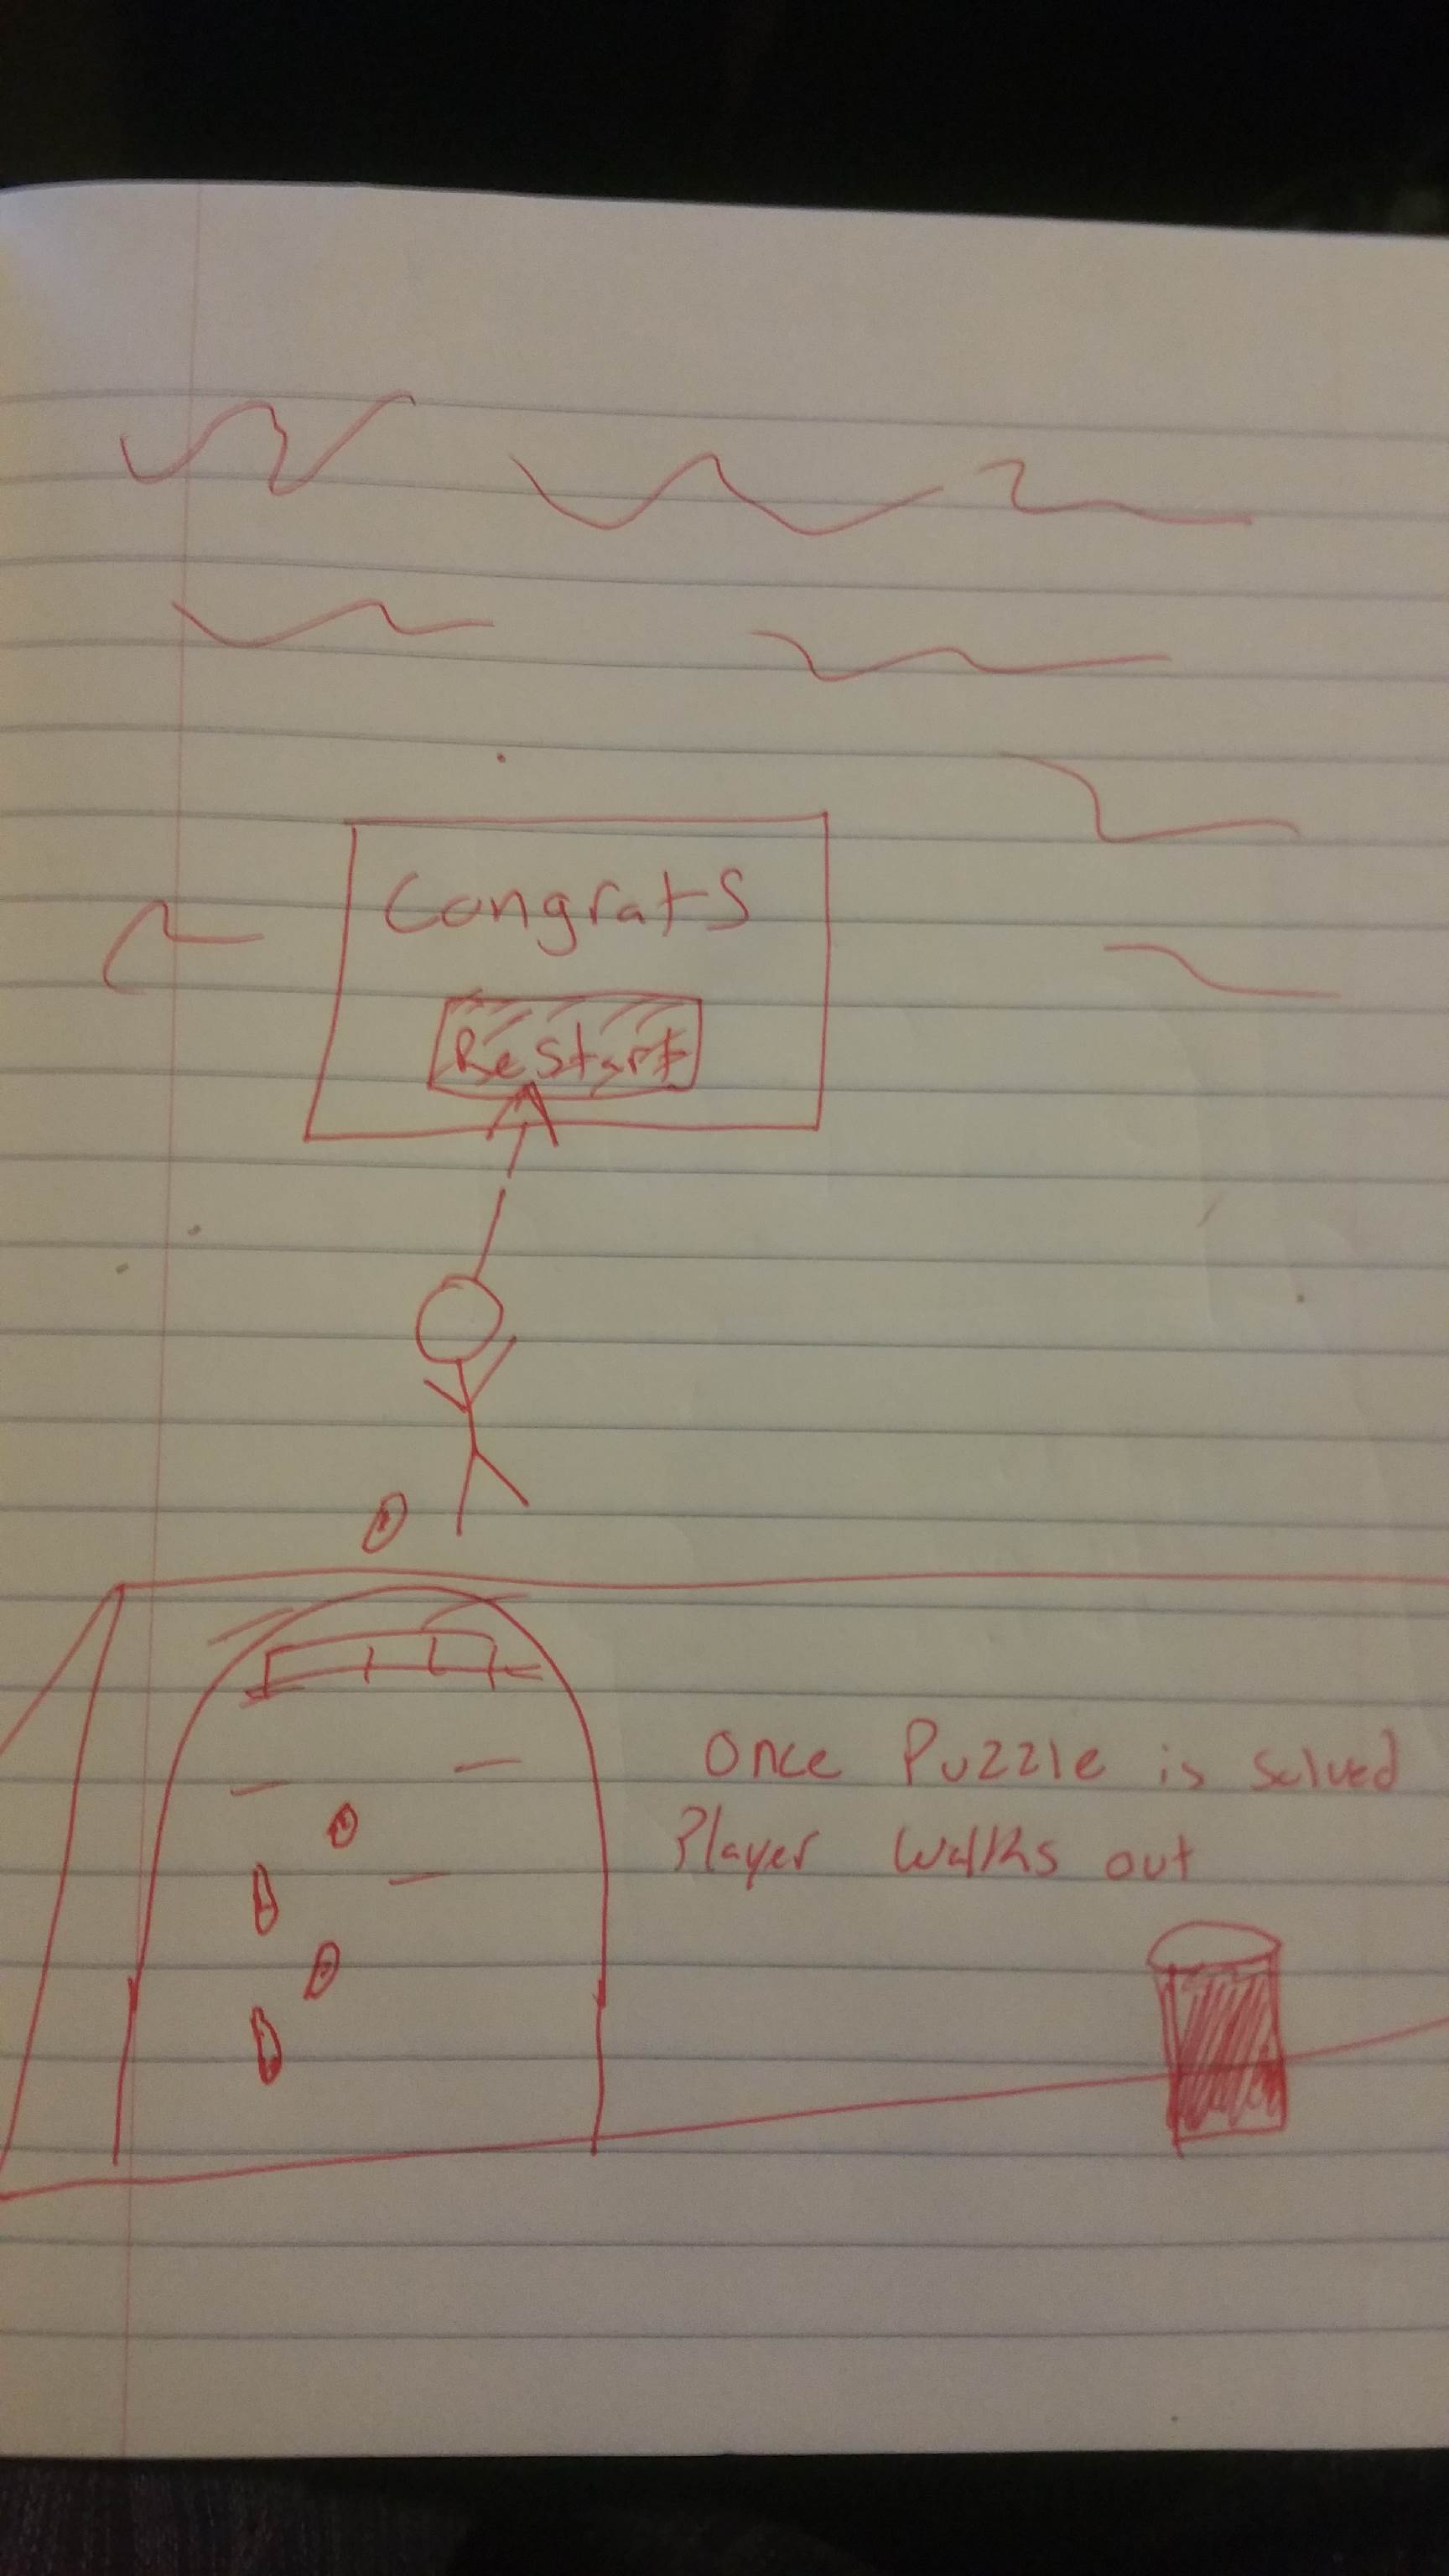 Congrats
ReStart
Once Puzzle is solved
Player Walks out